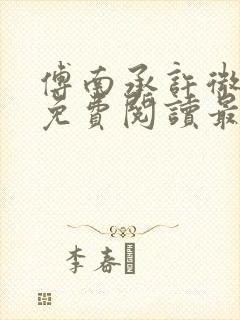 傅南承許微
免費閱讀最
李春